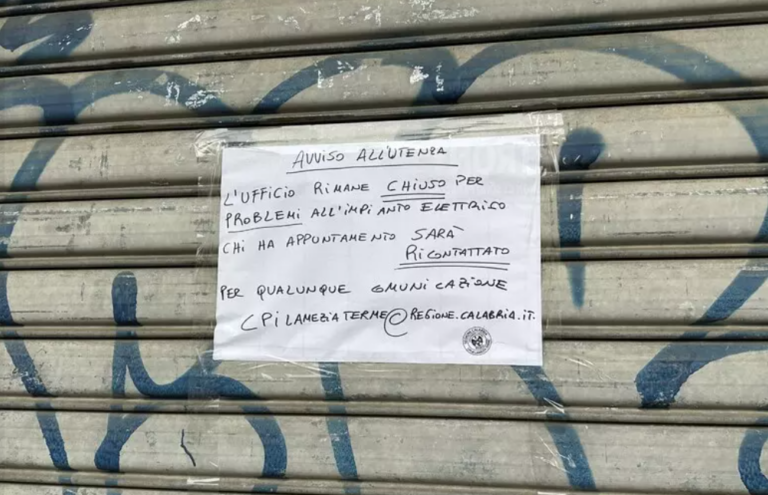 AVVISO ALL'UTENZA
L'UFFICIO RIMANE CHIUSO PER
PROBLEMI ALL'IMPIANTO ELETTRICO
CHI HA APPUNTAMENTO SARÀ
RICONTATTATO
PER QUALUNQUE COMUNICAZIONE
CPILAMEZIATERME@REGIONE.CALABRIA.IT.